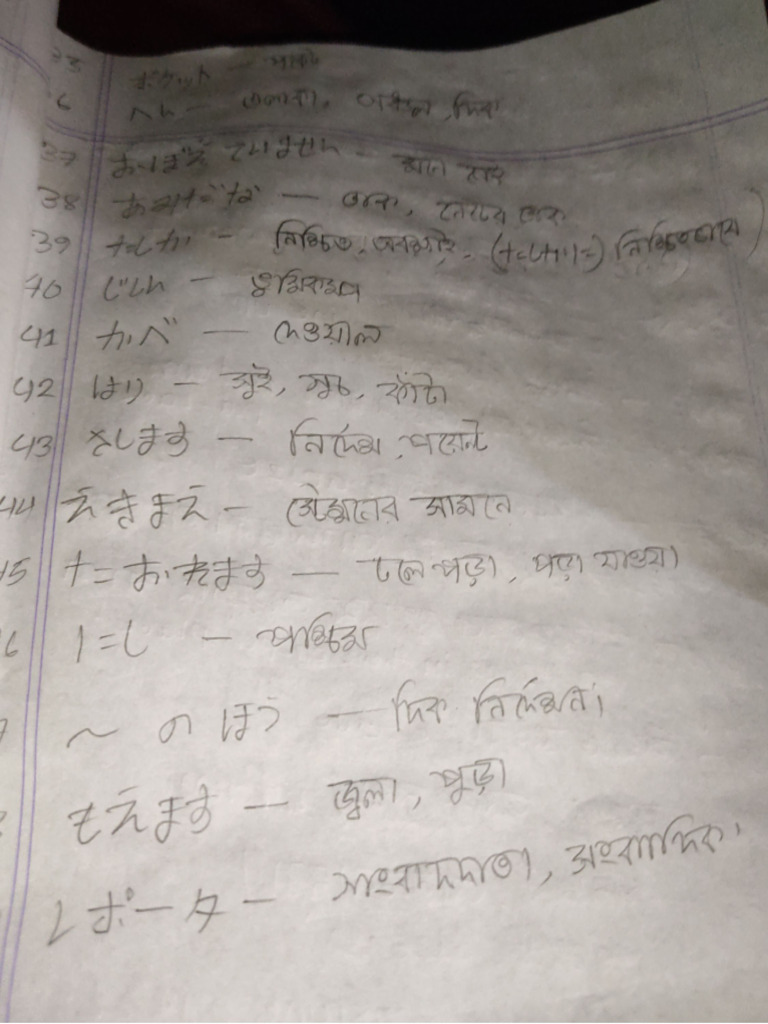 35 ポケット — পকেট
6 へん — এলাকা, অঞ্চল, দিক
37 おぼえていません — মনে নেই
38 あみだな — তাক,
39 たしか — নিশ্চিত, (たしかに) নিশ্চিতভাবে)
40 じしん — ভূমিকম্প
41 かべ — দেওয়াল
42 はり — সুই, সুচ, কাঁটা
43 さします — নির্দেশ, পয়েন্ট
44 えきまえ — স্টেশনের সামনে
45 たおれます — ঢলে পড়া, পড়ে যাওয়া
6 にし — পশ্চিম
~ のほう — দিক নির্দেশনা
もえます — জ্বলা, পুড়া
レポーター — সংবাদদাতা, সাংবাদিক